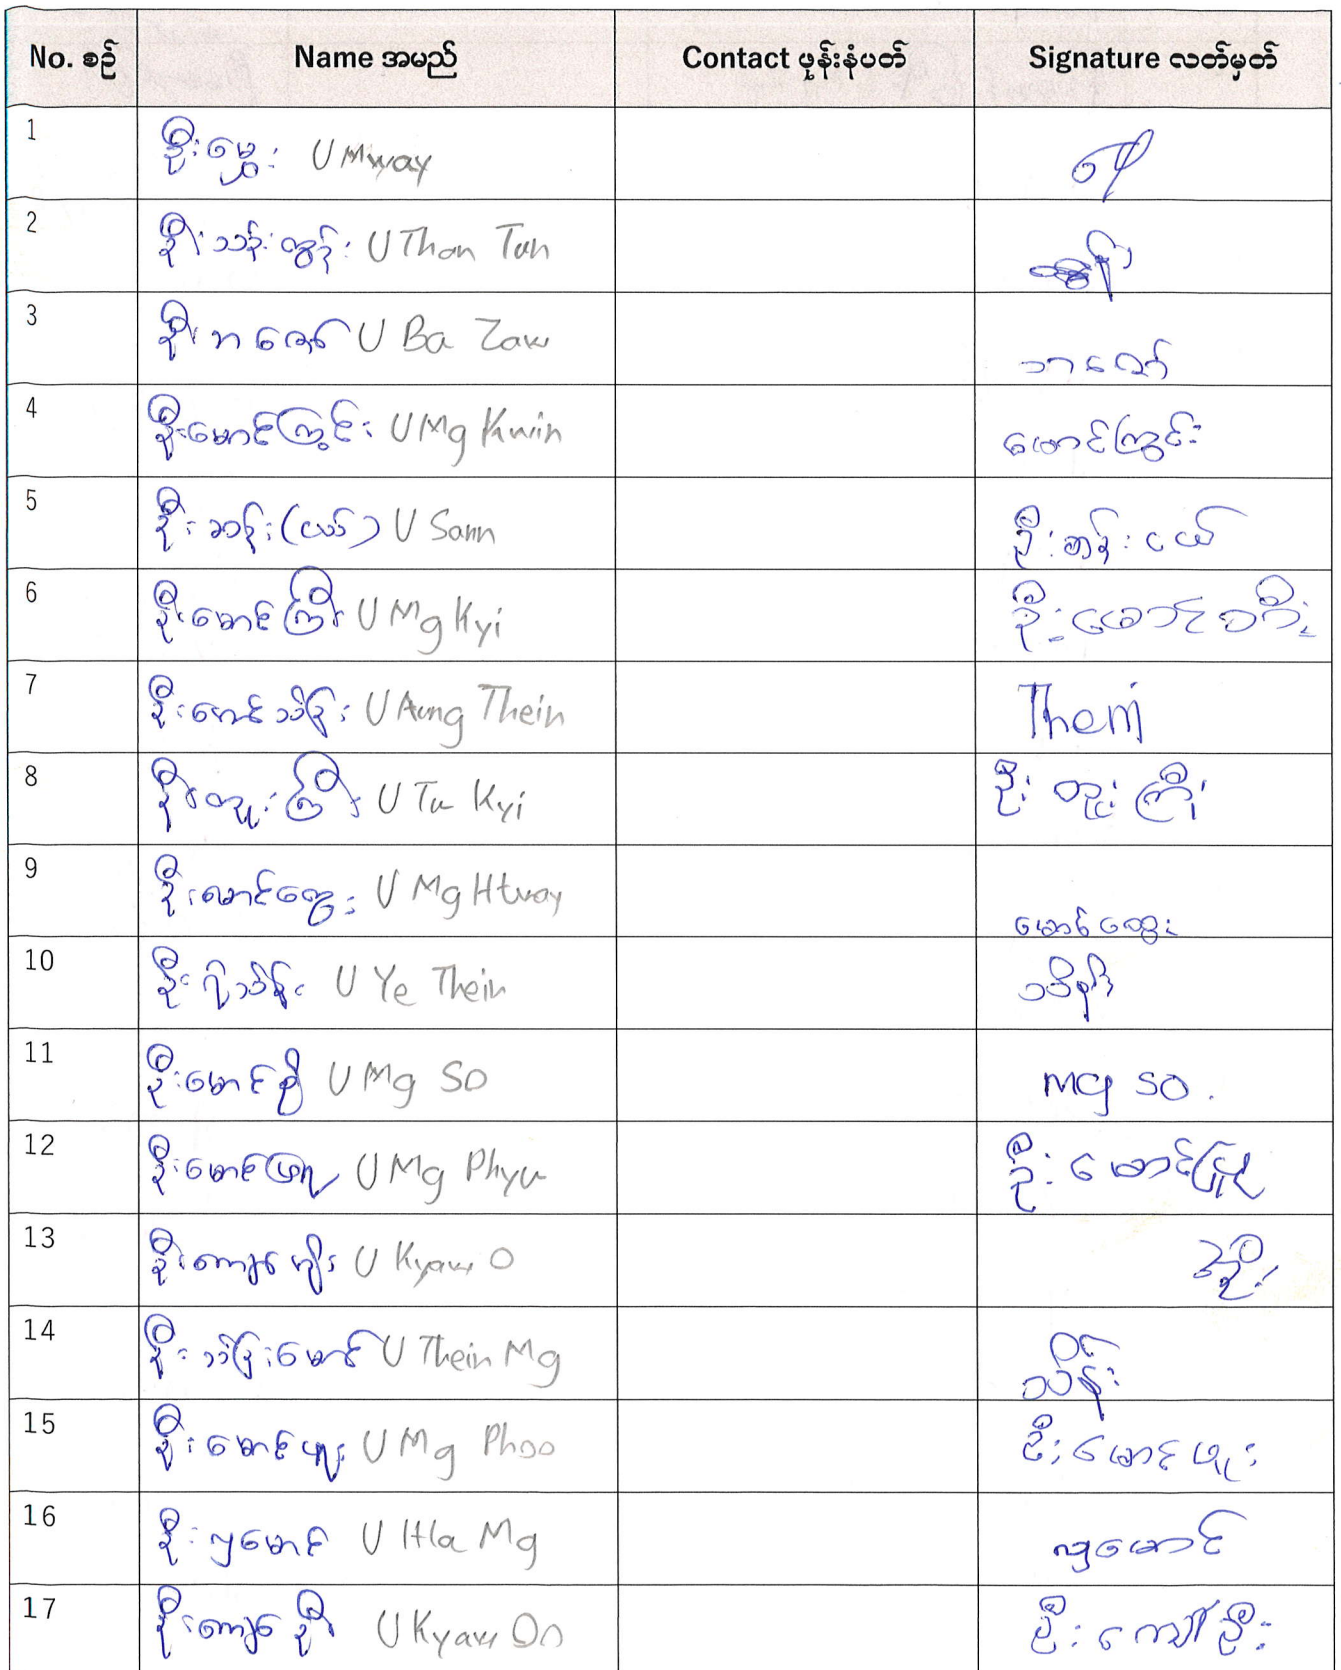 No. စဉ် Name အမည် Contact ဖုန်းနံပတ် Signature လတ်မှတ်
1 ဦးမွှေး U Mway
2 ဦးသန်းထွန်း U Than Tun
3 ဦးဘဇော် U Ba Zaw ဘဇော်
4 ဦးမောင်ကြွင်း U Mg Kwin မောင်ကြွင်း
5 ဦးဆန်း(ငယ်) U Sann ဦးဆန်းငယ်
6 ဦးမောင်ကြီး U Mg Kyi ဦးမောင်ကြီး
7 ဦးအောင်သိန်း U Aung Thein Thein
8 ဦးတူးကြီး U Tu Kyi ဦးတူးကြီး
9 ဦးမောင်ထွေး U Mg Htway မောင်ထွေး
10 ဦးရဲသိန်း U Ye Thein သိန်း
11 ဦးမောင်စို U Mg So Mg So.
12 ဦးမောင်ဖြူ U Mg Phyu ဦးမောင်ဖြူ
13 U Kyaw O
14 ဦးသိန်းမောင် U Thein Mg သိန်း
15 ဦးမောင်ဖူး U Mg Phoo ဦးမောင်ဖူး
16 ဦးလှမောင် U Hla Mg လှမောင်
17 ဦးကျော်ဦး U Kyaw Oo ဦးကျော်ဦး